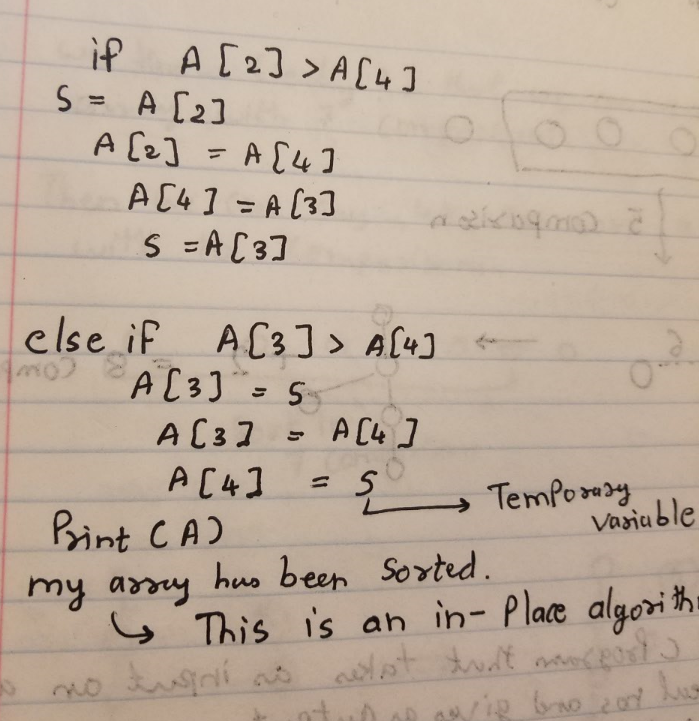 if A[2] > A[4]
S = A[2]
A[2] = A[4]
A[4] = A[3]
S = A[3]
else if A[3] > A[4]
A[3] = S
A[3] = A[4]
A[4] = S → Temporary variable
Print (A)
my array has been sorted.
↳ This is an in-Place algorith